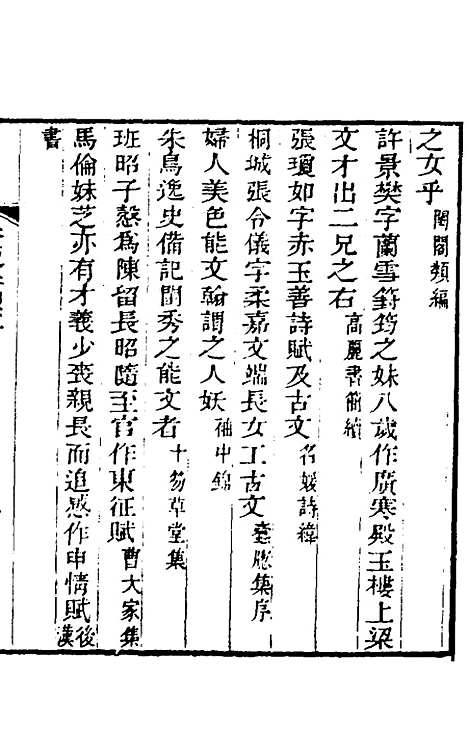 之女乎 閨閤類編
許景樊字蘭雪篈筠之妹八歲作廣寒殿玉樓上梁
文才出二兄之右 高麗書簡續
張瓊如字赤玉善詩賦及古文 名媛詩緯
桐城張令儀字柔嘉文端長女工古文 蠹牕集序
婦人美色能文翰謂之人妖 袖中錦
朱鳥逸史備記閨秀之能文者 十笏草堂集
班昭子穀爲陳留長昭隨至官作東征賦 曹大家集
馬倫妹芝亦有才義少喪親長而追感作申情賦 後漢
書